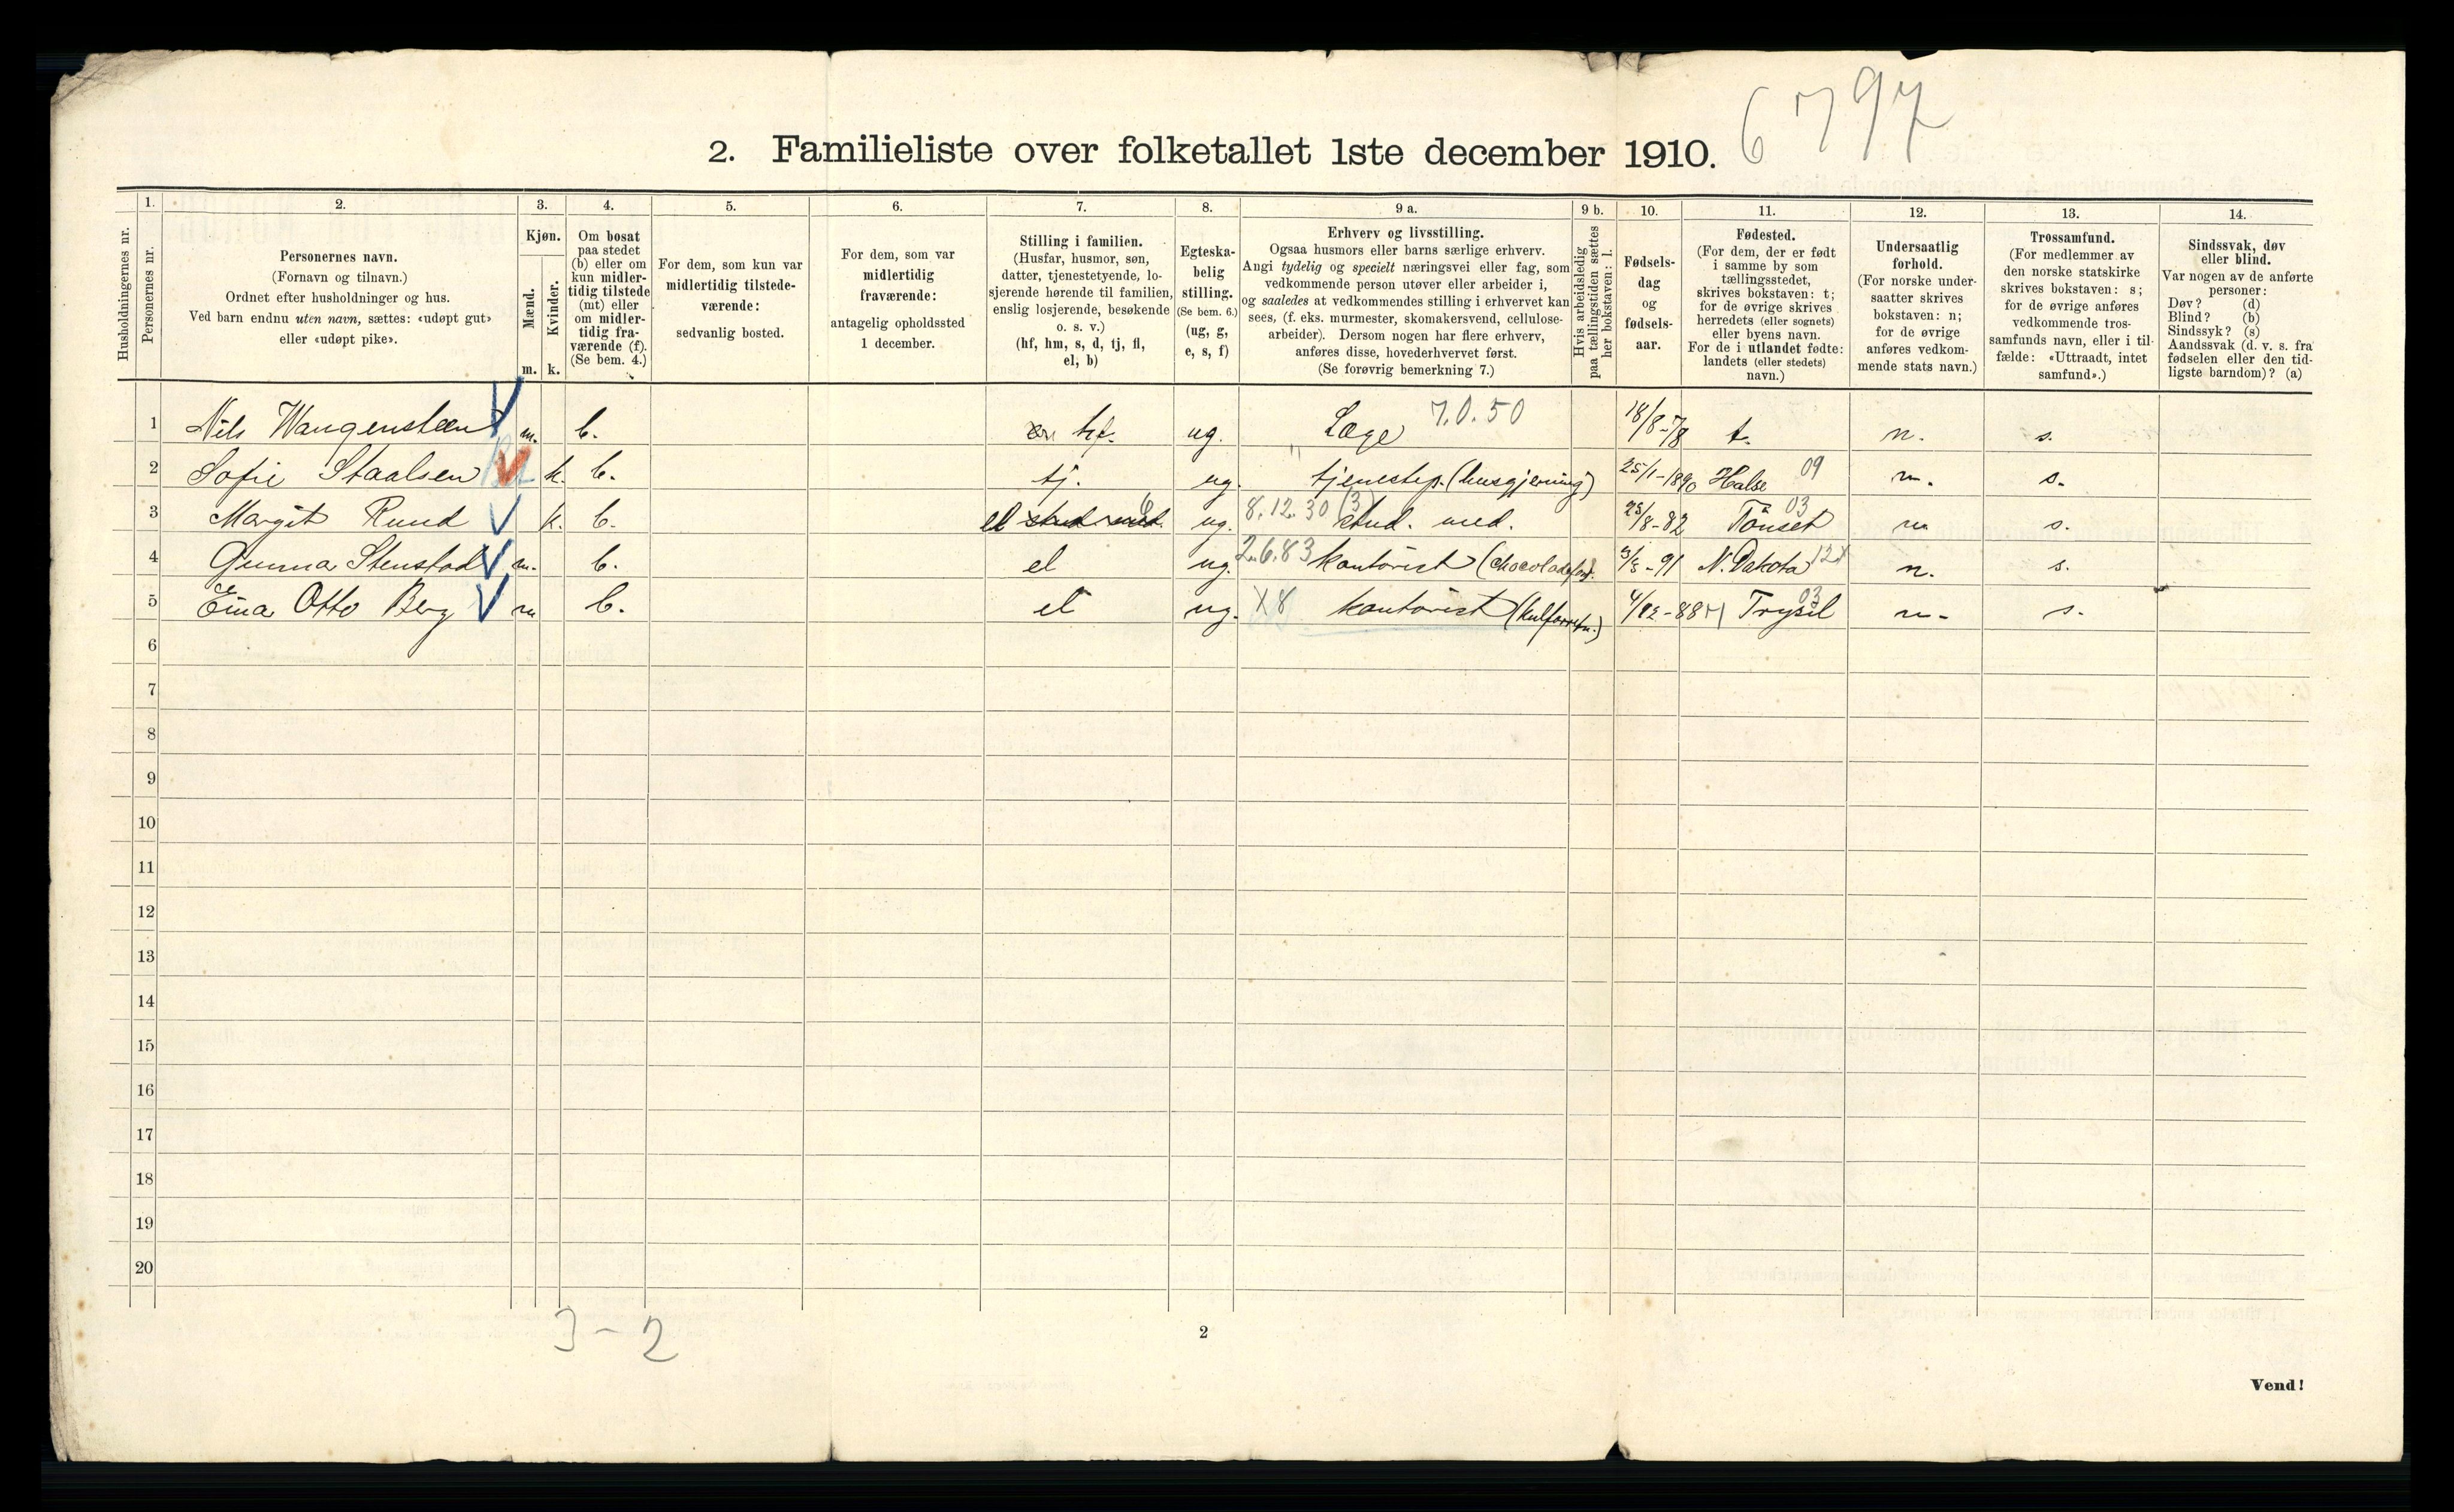 6797
2. Familieliste over folketallet 1ste december 1910.
Husholdningernes nr.
1.
Personernes nr.
2.
Personernes navn.
(Fornavn og tilnavn.)
Ordnet efter husholdninger og hus.
Ved barn endnu uten navn, sættes: «udøpt gut»
eller «udøpt pike».
3.
Kjøn.
Mænd.
Kvinder.
m. k.
4.
Om bosat
paa stedet
(b) eller om
kun midler-
tidig tilstede
(mt) eller
om midler-
tidig fra-
værende (f).
(Se bem. 4.)
5.
For dem, som kun var
midlertidig tilstede-
værende:
sedvanlig bosted.
6.
For dem, som var
midlertidig
fraværende:
antagelig opholdssted
1 december.
7.
Stilling i familien.
(Husfar, husmor, søn,
datter, tjenestetyende, lo-
sjerende hørende til familien,
enslig losjerende, besøkende
o. s. v.)
(hf, hm, s, d, tj, fl,
el, b)
8.
Egteska-
belig
stilling.
(Se bem. 6.)
(ug, g,
e, s, f)
9 a.
Erhverv og livsstilling.
Ogsaa husmors eller barns særlige erhverv.
Angi tydelig og specielt næringsvei eller fag, som
vedkommende person utøver eller arbeider i,
og saaledes at vedkommendes stilling i erhvervet kan
sees, (f. eks. murmester, skomakersvend, cellulose-
arbeider). Dersom nogen har flere erhverv,
anføres disse, hovederhvervet først.
(Se forøvrig bemerkning 7.)
9 b.
Hvis arbeidsledig
paa tællingstiden sættes
her bokstaven: l.
10.
Fødsels-
dag
og
fødsels-
aar.
11.
Fødested.
(For dem, der er født
i samme by som
tællingsstedet,
skrives bokstaven: t;
for de øvrige skrives
herredets (eller sognets)
eller byens navn.
For de i utlandet fødte:
landets (eller stedets)
navn.)
12.
Undersaatlig
forhold.
(For norske under-
saatter skrives
bokstaven: n;
for de øvrige
anføres vedkom-
mende stats navn.)
13.
Trossamfund.
(For medlemmer av
den norske statskirke
skrives bokstaven: s;
for de øvrige anføres
vedkommende tros-
samfunds navn, eller i til-
fælde: «Uttraadt, intet
samfund».)
14.
Sindssvak, døv
eller blind.
Var nogen av de anførte
personer:
Døv? (d)
Blind? (b)
Sindssyk? (s)
Aandssvak (d. v. s. fra
fødselen eller den tid-
ligste barndom)? (a)
1 Nils Wangensteen m. b. hf. ug. Læge 7.0.50 18/8-78 t. n. s.
2 Sofie Staalsen k. b. tj. ug. tjenestep. (husgjerning) 25/1-1890 Halse 09 n. s.
3 Margit Ruud k. b. el stud. med. ug. 8.12.30 (3) stud. med. 23/8-82 Tönset 03 n s.
4 Gunnar Stenstad m. b. el ug. 2.6.83 kontorist (chocoladefab. 3/5-91 N. Dakota 12x n. s.
5 Einar Otto Berg m b. el ug. X8 kontorist (kulforretn.) 4/12-88 Trysil 03 n. s.
6
7
8
9
10
11
12
13
14
15
16
17
18
19
20
3-2
2
Vend!